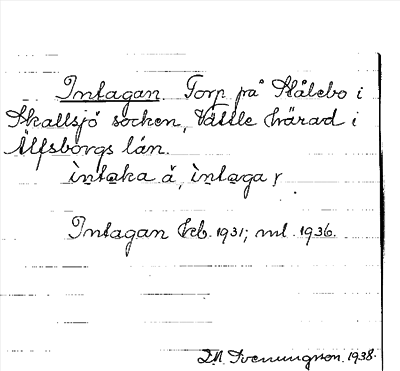 Intagan. Torp på Stålebo i
Skallsjö socken, Vättle härad i
Älfsborgs län.
ìntaka å, ìntaga r
Intagan kb. 1931; ml. 1936.
Svenungson. 1938.